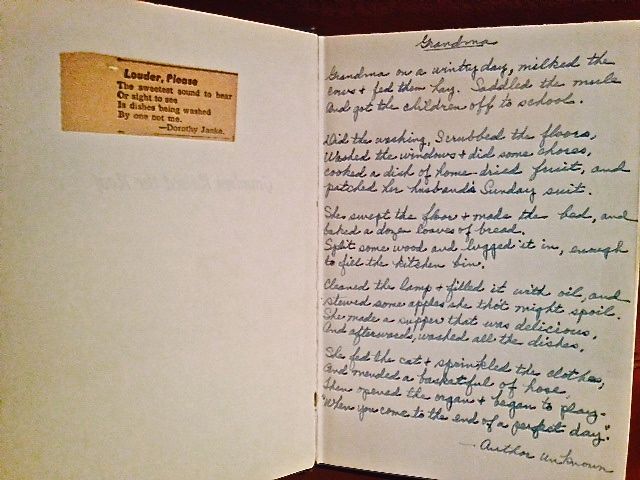 Louder, Please
The sweetest sound to hear
Or sight to see
Is dishes being washed
By one not me.
—Dorothy Janke.
Grandma
Grandma on a wintry day, milked the
cows + fed them hay. Saddled the mule
And got the children off to school.
Did the washing, Scrubbed the floors,
Washed the windows + did some chores,
cooked a dish of home-dried fruit, and
patched her husband's Sunday suit.
She swept the floor + made the bed, and
baked a dozen loaves of bread.
Split some wood and lugged it in, enough
to fill the kitchen bin.
Cleaned the lamp + filled it with oil, and
stewed some apples she thot might spoil.
She made a supper that was delicious,
And afterwards, washed all the dishes.
She fed the cat + sprinkled the clothes,
And mended a basketful of hose,
Then opened the organ + began to play-
"When you come to the end of a perfect day."
- Author Unknown